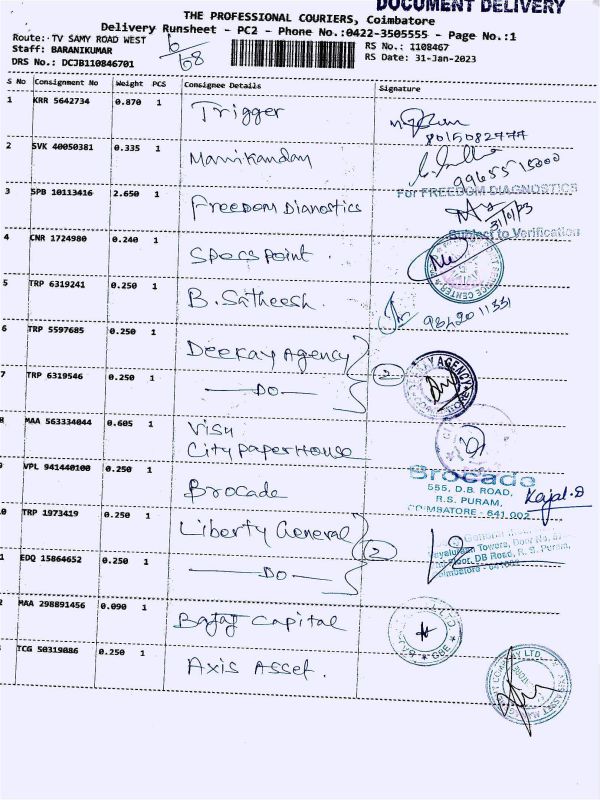 DOCUMENT DELIVERY
THE PROFESSIONAL COURIERS, Coimbatore
Delivery Runsheet - PC2 - Phone No.:0422-3505555 - Page No.:1
Route: TV SAMY ROAD WEST
Staff: BARANIKUMAR
DRS No.: DCJB110846701
6/68
RS No.: 1108467
RS Date: 31-Jan-2023
S No Consignment No Weight PCS Consignee Details Signature
1 KRR 5642734 0.870 1 Trigger
8015082777
2 SVK 40050381 0.335 1 Manikandan
3 SPB 10113416 2.650 1 Freedom Dianostics
For FREEDOM DIAGNOSTICS
31/01/23
Subject to Verification
4 CNR 1724980 0.240 1 Specs point
5 TRP 6319241 0.250 1 B. Satheesh
98420 11331
6 TRP 5597685 0.250 1 Deekay Agency
7 TRP 6319546 0.250 1 — DO —
2
AGENCY
8 MAA 563334044 0.605 1 Visu
City paper House
9 VPL 941440100 0.250 1 Brocade
Brocade
555, D.B. ROAD,
R.S. PURAM,
COIMBATORE - 641 002
Kajal.D
0 TRP 1973419 0.250 1 Liberty General
1 EDQ 15864652 0.250 1 — DO —
2
Towers, Door No.
Floor, DB Road, R. S. Puram,
Coimbatore
2 MAA 298891456 0.090 1 Bajaj Capital
TCG 50319086 0.250 1 Axis Asset.